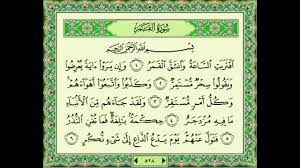 سُورَةُ القَمَرِ
بِسْمِ اللَّهِ الرَّحْمَٰنِ الرَّحِيمِ
اقْتَرَبَتِ السَّاعَةُ وَانشَقَّ الْقَمَرُ ١ وَإِن يَرَوْا آيَةً يُعْرِضُوا
وَيَقُولُوا سِحْرٌ مُّسْتَمِرٌّ ٢ وَكَذَّبُوا وَاتَّبَعُوا أَهْوَاءَهُمْ
وَكُلُّ أَمْرٍ مُّسْتَقِرٌّ ٣ وَلَقَدْ جَاءَهُم مِّنَ الْأَنبَاءِ
مَا فِيهِ مُزْدَجَرٌ ٤ حِكْمَةٌ بَالِغَةٌ فَمَا تُغْنِ النُّذُرُ
٥ فَتَوَلَّ عَنْهُمْ يَوْمَ يَدْعُ الدَّاعِ إِلَىٰ شَيْءٍ نُّكُرٍ ٦
٥٢٨